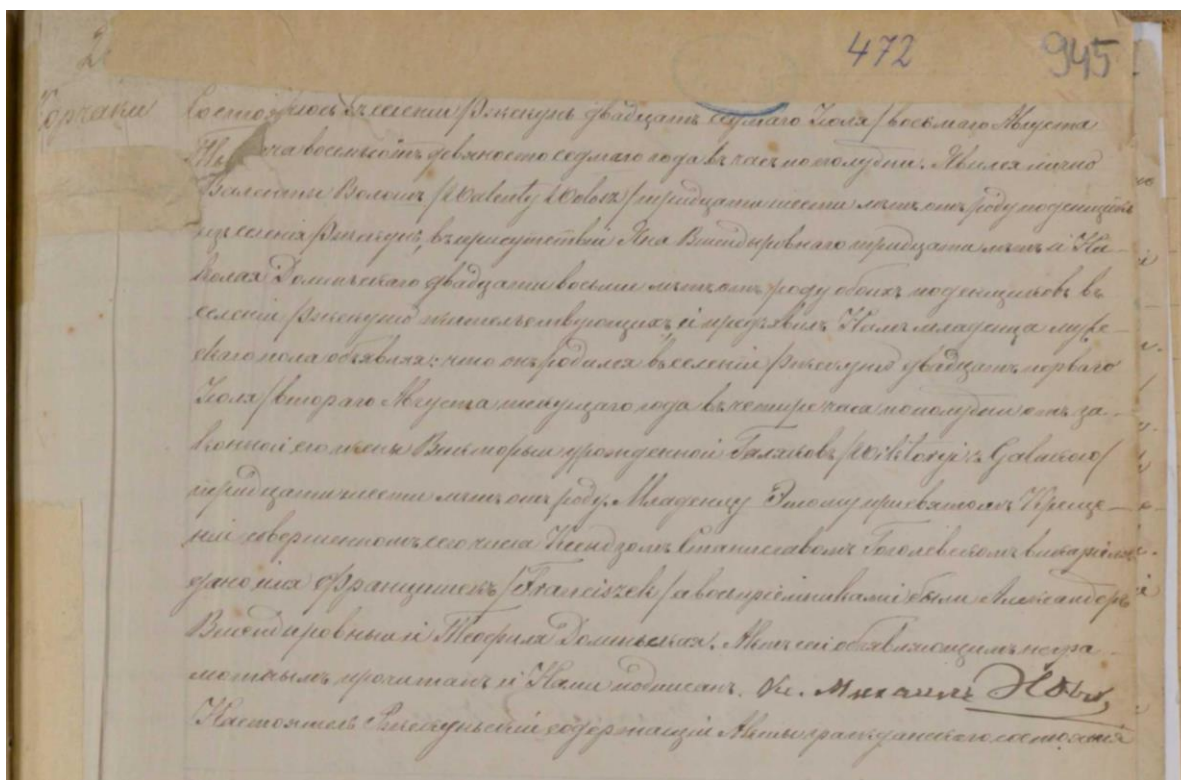 472 945
Горчаки
Состоялось въ селеніи Ржекунь двадцать седьмаго Іюля / восьмаго Августа
восемьсотъ девяносто седьмаго года въ часъ по полудни. Явился лично
Валенты Волошъ / Walenty Wolosz / тридцати шести лѣтъ отъ роду поденщикъ
изъ селенія Ржекунь, въ присутствіи Яна тридцати лѣтъ и Ни-
колая двадцати восьми лѣтъ отъ роду обоихъ поденщиковъ въ
селеніи Ржекунь жительствующихъ, и предъявилъ Намъ младенца муже-
скаго пола объявляя: что онъ родился въ селеніи Ржекунь двадцать перваго
Іюля / втораго Августа текущаго года въ четыре часа по полудни отъ за-
конной его жены Викторіи урожденной /
тридцати шести лѣтъ отъ роду. Младенцу этому при святомъ Креще-
ніи совершенномъ сего числа Ксендзомъ Станиславомъ
дано имя Францишекъ / Franciszek / а воспріемниками были Александръ
и Теофиля. Актъ сей объявляющимъ негра-
мотнымъ прочитанъ и Нами подписанъ. Кс. Михаилъ
Настоятель содержащій Акты гражданскаго состоянія